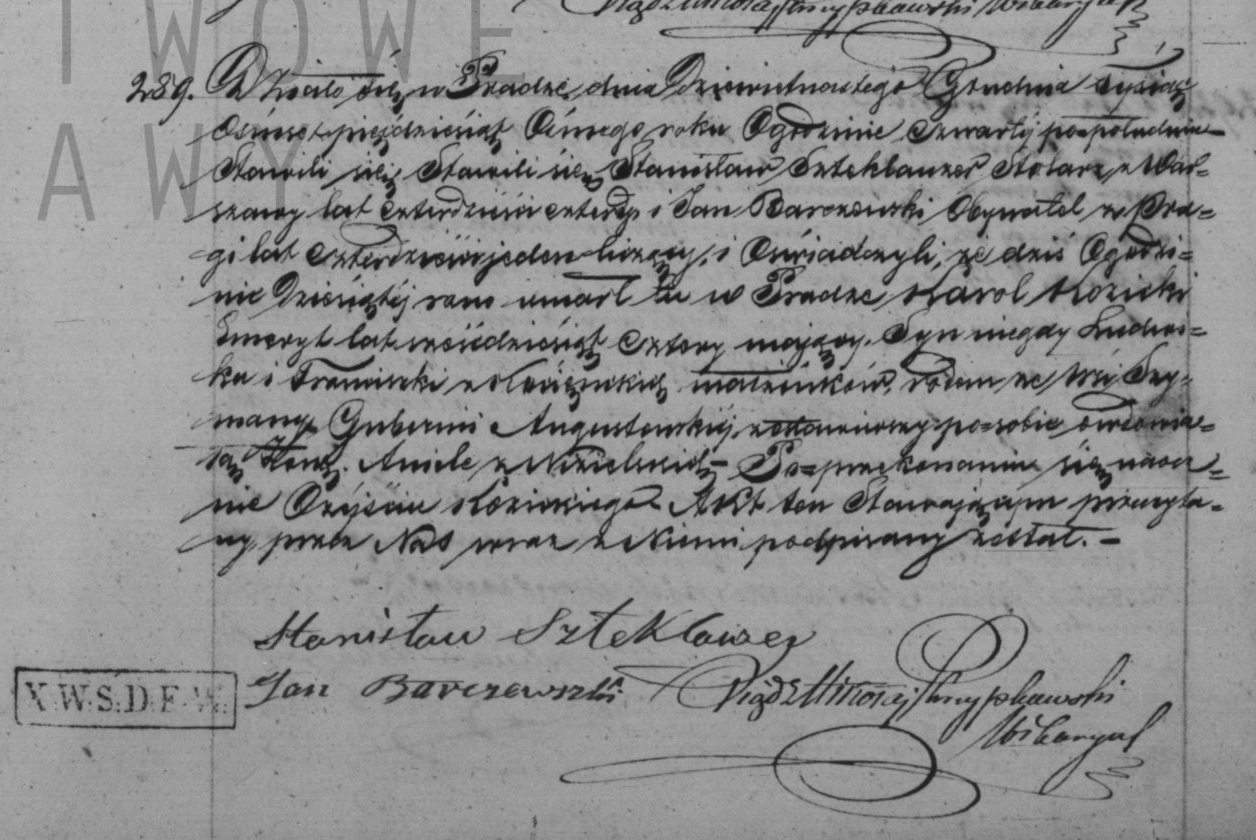 TWOWE
AWY
Xiądz Mikołaj Przypkowski Wikaryusz
289. Działo się w Pradze, dnia Dziewiętnastego Grudnia tysiąc
Ośmset pięćdziesiąt Ósmego roku Ogodzinie czwartéj po=południu
Stawili się, Stawili się, Stanisław Szteklauzer Stolarz, z War=
szawy lat czterdzieści cztery, i Jan Barczewski Obywatel z Pra=
gi lat czterdzieści jeden liczący, i Oświadczyli, że dziś Ogodzi=
nie Dziesiątéj rano umarł tu w Pradze Karol Kozicki
Emeryt lat sześćdziesiąt cztery mający, Syn niegdy Ludwi=
ka i Franciszki z małżonków, rodem ze wsi Szy=
many Gubernii Augustowskiéj zostawiwszy po=sobie owdowia=
łą żonę Anielę z Po=przekonaniu się naocz=
nie O zejściu Kozickiego Akt ten Stawającym przeczyta=
ny przez Nas wraz z Niemi podpisany został. —
Stanisław Szteklauzer
Jan Barczewszki Xiądz Mikołaj Przypkowski
Wikaryusz
X.W.S.D.F.W.